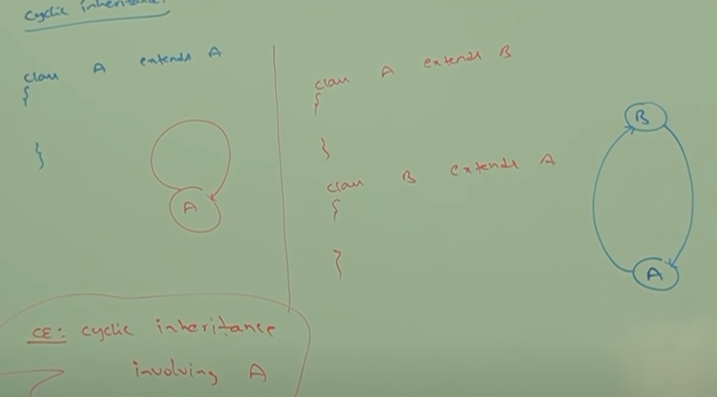 cyclic inheritance:
class A extends A
{
}
A
class A extends B
{
}
class B extends A
{
}
B
A
CE: cyclic inheritance
involving A